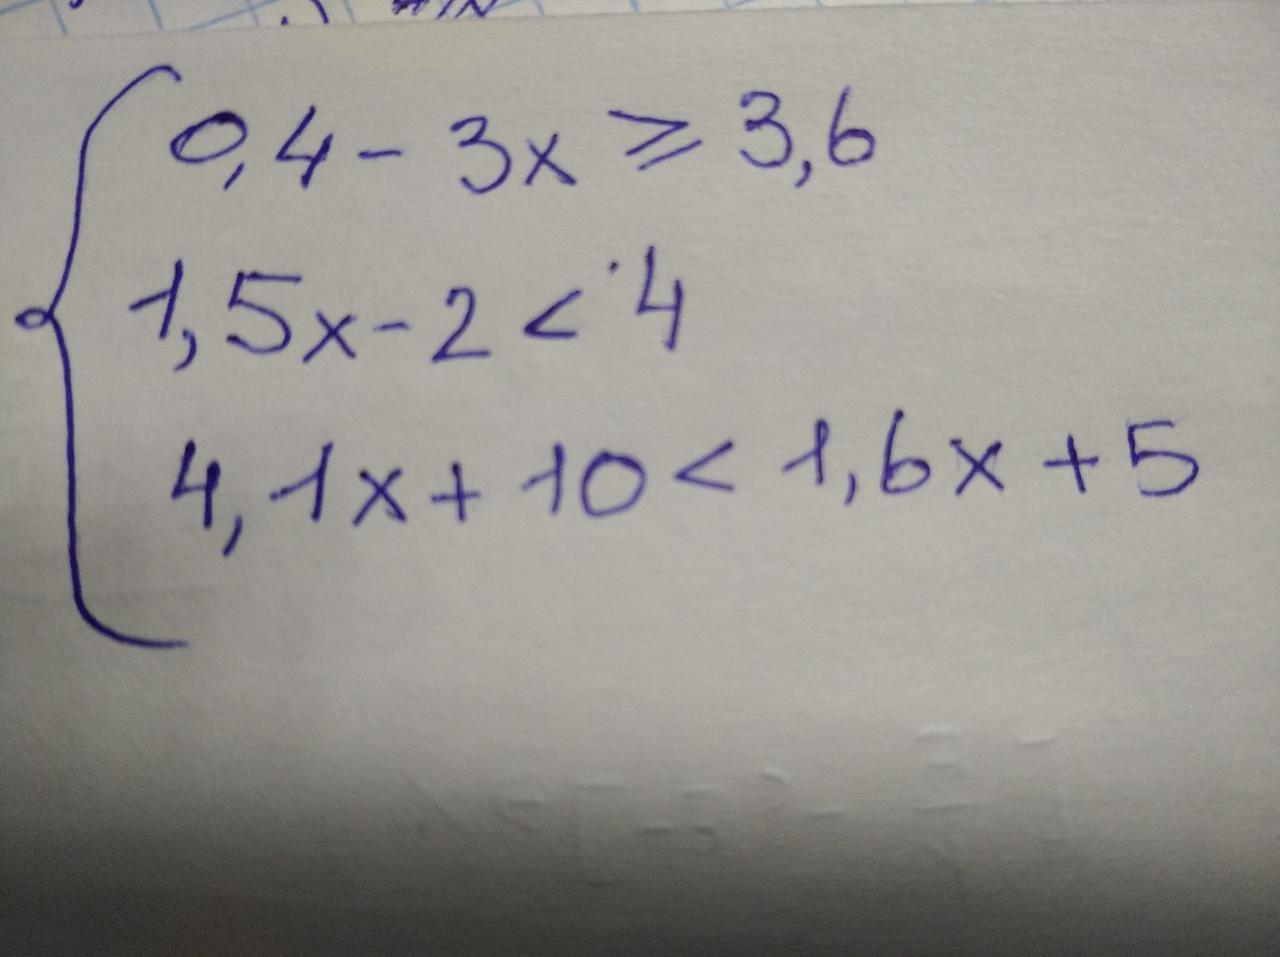 0,4 - 3x ⩾ 3,6
1,5x - 2 < 4
4,1x + 10 < 1,6x + 5